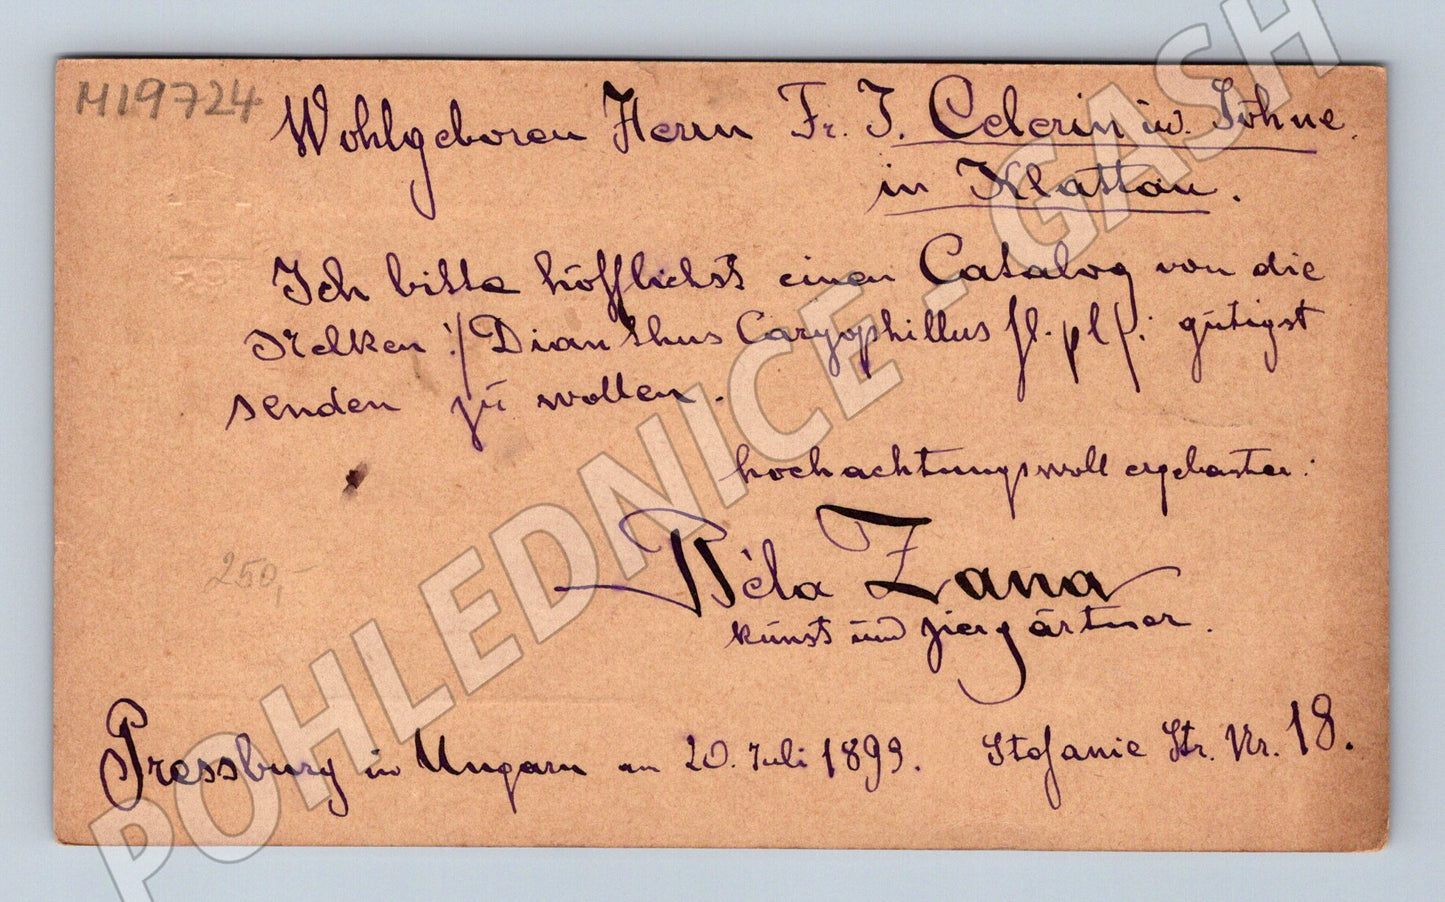 M19724
Wohlgeboren Herrn Fr. J. Celerin ud. Söhne.
in Klattau.
Ich bitte höfflichst einen Catalog von die
Nelken :/ Dianthus Caryophillus fl. pl /: gütigst
senden zu wollen.
hochachtungsvoll ergebenster:
Béla Zana
kunst und ziergärtner.
250,-
Pressburg in Ungarn am 20. Juli 1899. Stefanie Str. Nr. 18.
POHLEDNICE - GASH